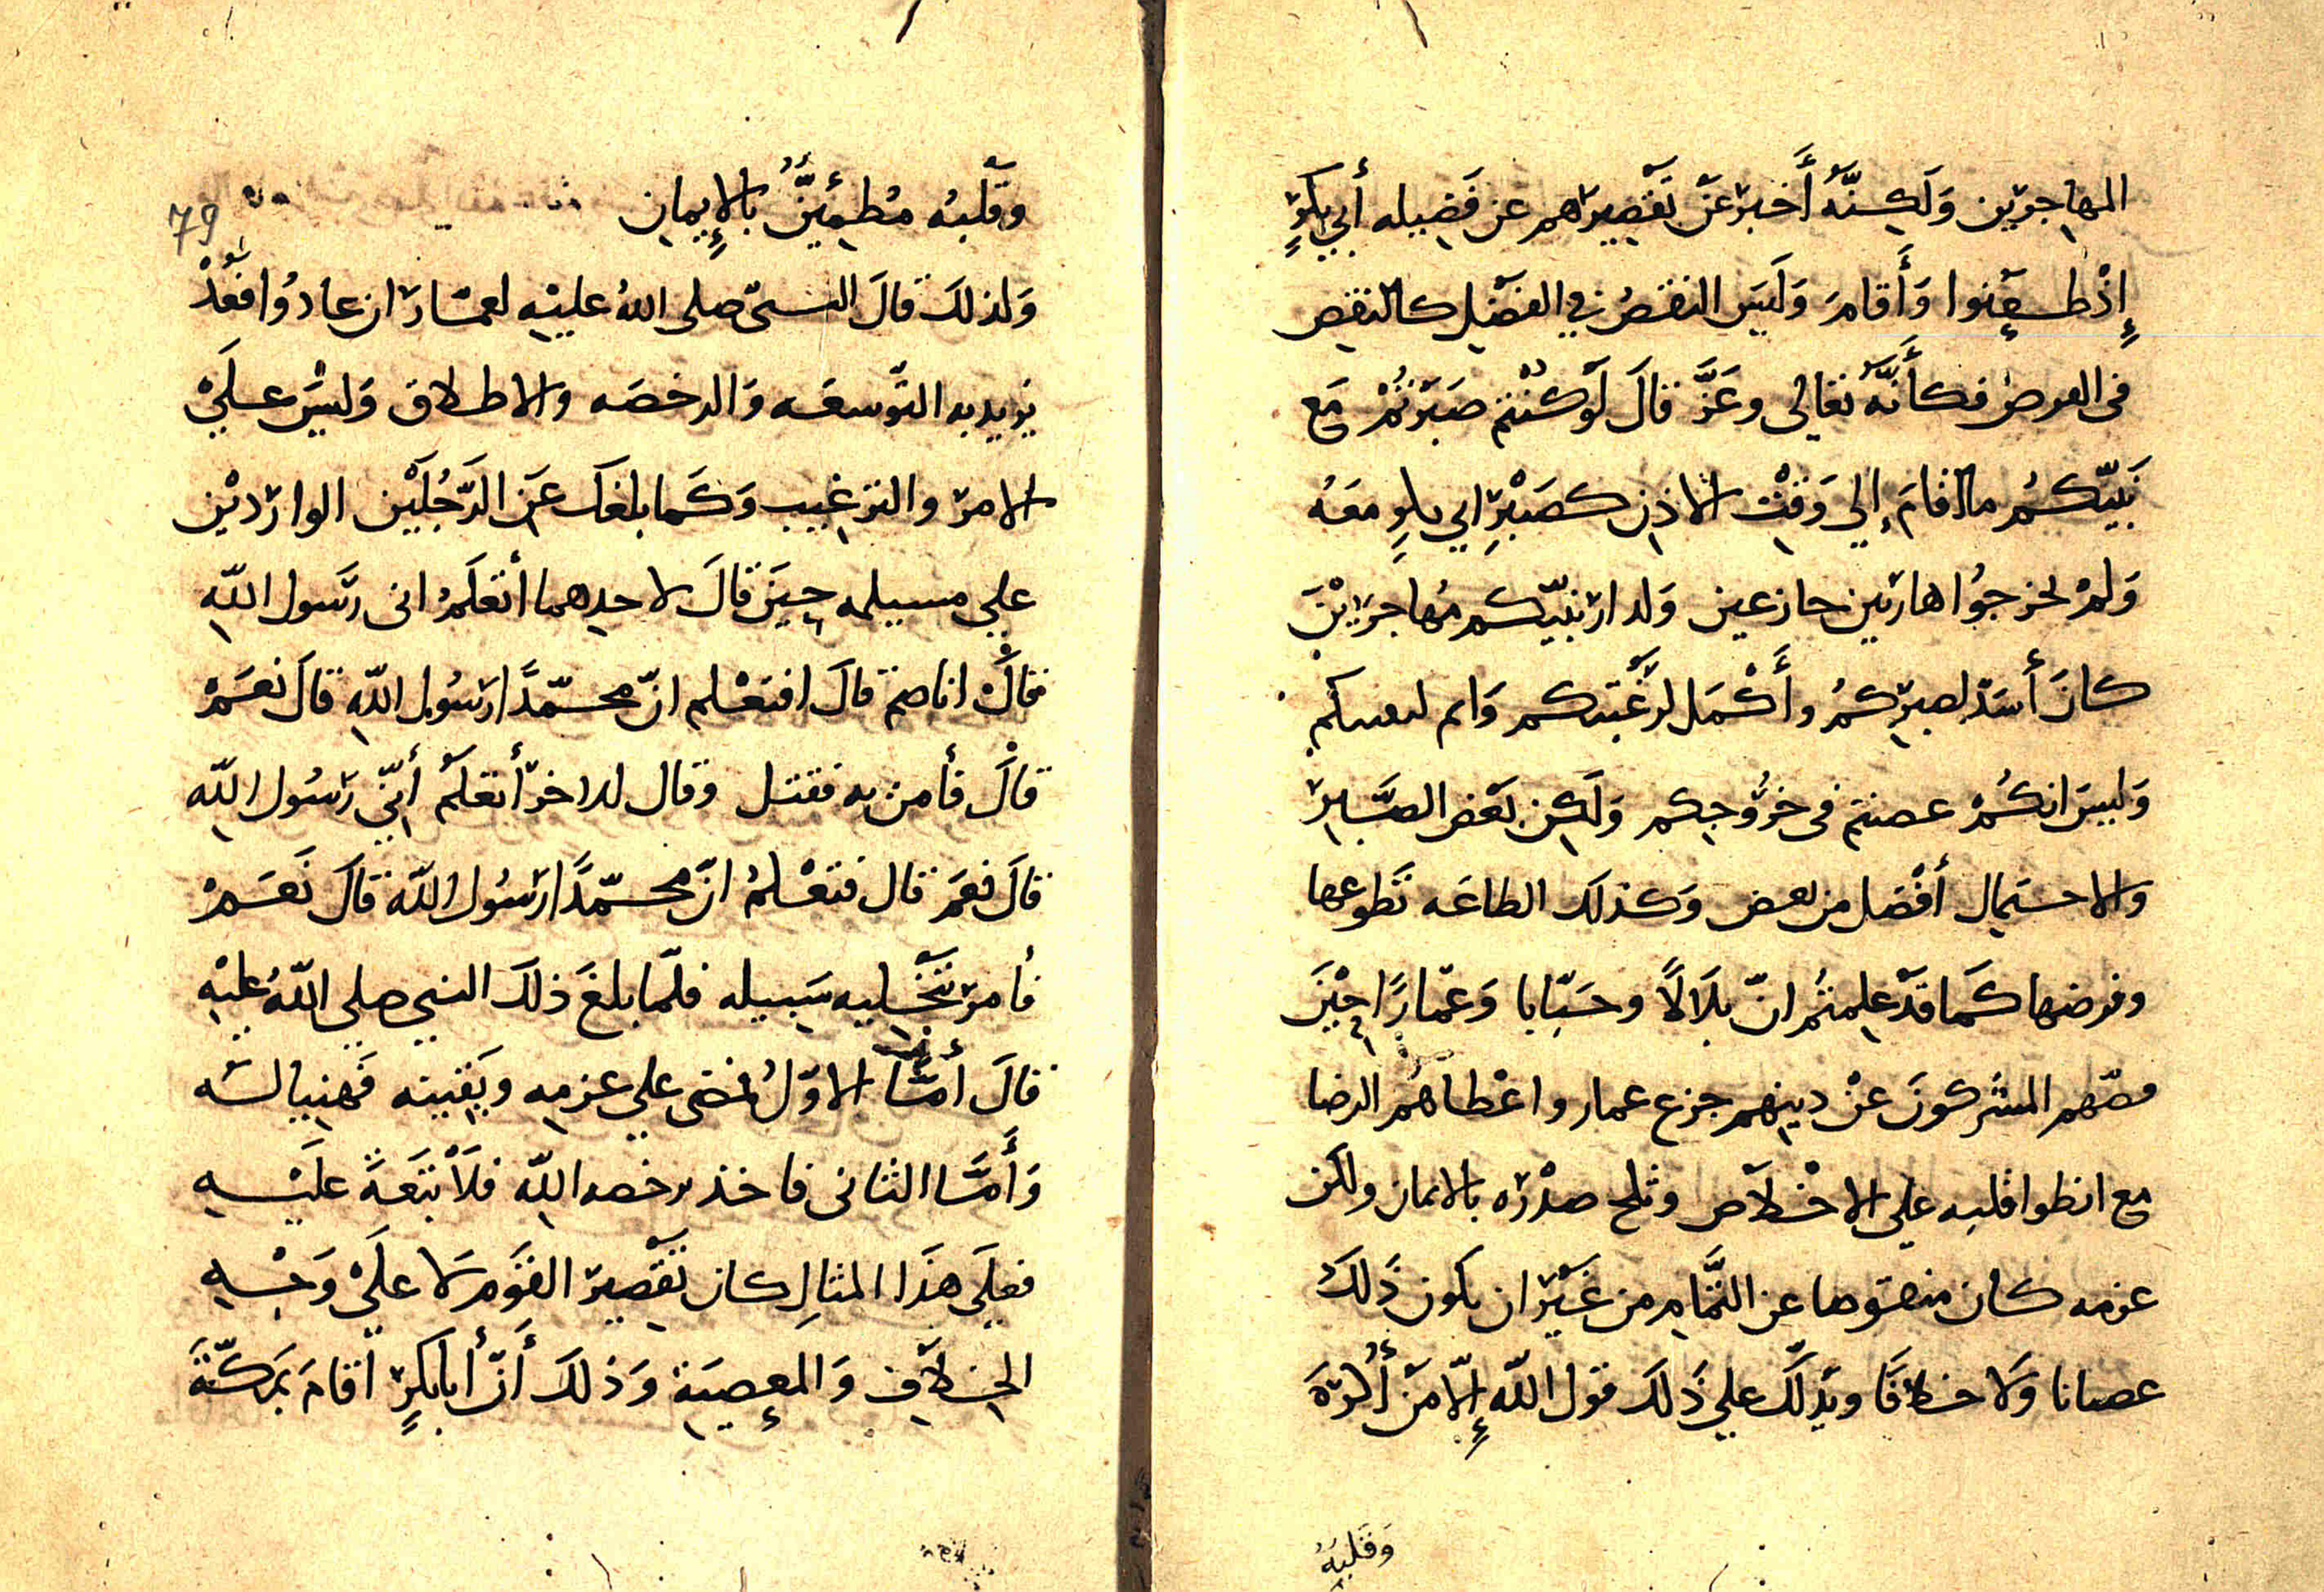 المهاجرين وَلَكِنَّهُ أَخبرَ عَنْ تَقْصِيرهم عن فَضِيله أَبي بكرٍ
إِذْ ظعنوا وَأَقامَ وَلَيسَ النقصُ في الفَضْل كالنقص
في الفرض فكأَنَّهُ تعَالى وعَزَّ قالَ لَوْ كنْتم صَبَرْتُمْ مَع
نَبيّكمُ ما اقامَ إِلي وَقْت الاذن كصَبْرِ ابي بكرٍ معَهُ
وَلمْ تخرجُوا هاربين جازعين وَلدار نبيّكم مُهاجرِيْنَ
كانَ أَشدّ لصبرِكمُ وأَكْمَل لرَغْبَتكم وَلم
وَليسَ انكُمْ عصيتم في خرُوجكم وَلَكِن بَعْض الصَّبر
والاحتمال أَفْضل من بعض وَكذلك الطاعَه تَطوعها
وفرضها كَما قدْ علمتُم انّ بلَالًا وخَبّابا وَعمّارًا حِيْنَ
فتنهم المشركونَ عنْ دينهم جزع عمار واعْطاهُم الرضا
مع انطوا قلبه علي الاخْلَاص وثلج صدْره بالايمان ولكن
عزمه كان منقوصا عن التَّمام من غَيْر ان يكون ذَلك
عصيانا وَلا خلافًا ويَدلّك علي ذَلك قول اللّه إِلّا مَنْ أُكْرِهَ
وَقَلبهُ
وقَلْبهُ مُطمَئِنٌّ بالإِيمان
79
وَلذلكَ قالَ النبيّ صلى اللهُ عليْهِ لعمّار ان عادُوا فَعُدْ
يريد به التَّوسعَه وَالرخصَه والاطلاق وَليْسَ عَلَيْ
الامر والترغيب وَكَما بلغك عَنِ الرَّجُلَيْن الواردَيْن
علي مسيلمه حِينَ قالَ لاحدهما أَتعلَمُ انى رَسول اللّهِ
فقالَ انا صم قالَ افتعْلم انّ محمّدًا رَسُول اللّهِ قالَ نَعَمْ
قالَ فأَمر به فقتل وقال للاخر أَتعلَمُ أَنّي رَسُول اللّه
قالَ نعَمْ قال فتعْلمُ انّ محمّدًا رَسُول اللّه قالَ نَعَمْ
فأمر بتَخْليه سَبيله فلمّا بلغَ ذلكَ النبي صلى اللّهُ عليْهِ
قالَ أَمَّا الاوّلُ فمضى علي عزمه ويَقينه فَهنيا لَه
وَأَمَّا الثانى فاخذ برخصه اللّه فلَا تَبَعَةَ عَلَيْهِ
فعلَى هذَا المثالِ كان تَقْصِير القَوم لَا علَيْ وَجْهِ
الخلَافِ وَالمعصِيَة وَذلكَ أَنَّ أَبا بكرٍ أَقامَ بمَكّةَ